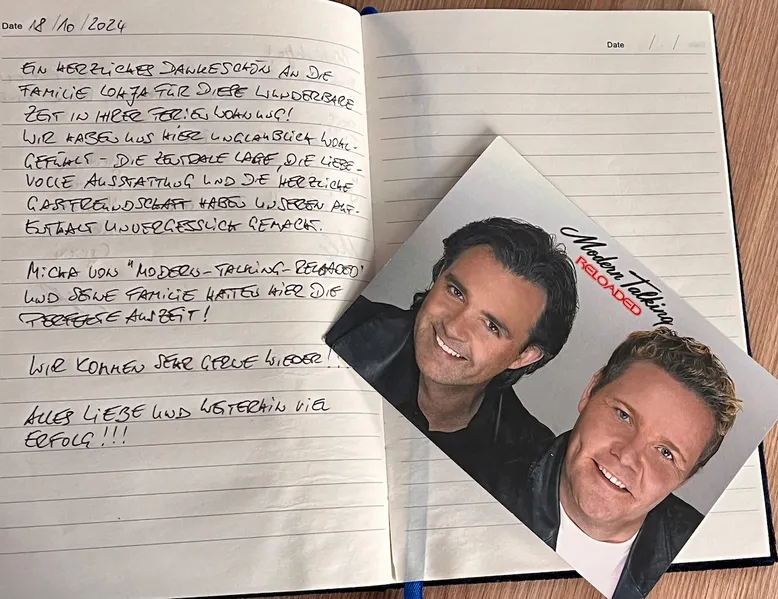 Date 18/10/2024
EIN HERZLICHES DANKESCHÖN AN DIE
FAMILIE LOHJA FÜR DIESE WUNDERBARE
ZEIT IN IHRER FERIENWOHNUNG!
WIR HABEN UNS HIER UNGLAUBLICH WOHL-
GEFÜHLT - DIE ZENTRALE LAGE, DIE LIEBE-
VOLLE AUSSTATTUNG UND DIE HERZLICHE
GASTFREUNDSCHAFT HABEN UNSEREN AUF-
ENTHALT UNVERGESSLICH GEMACHT.
MICHA VON "MODERN-TALKING-RELOADED"
UND SEINE FAMILIE HATTEN HIER DIE
PERFEKTE AUSZEIT!
WIR KOMMEN SEHR GERNE WIEDER!
ALLES LIEBE UND WEITERHIN VIEL
ERFOLG!!!
Date / /
Modern Talking
RELOADED